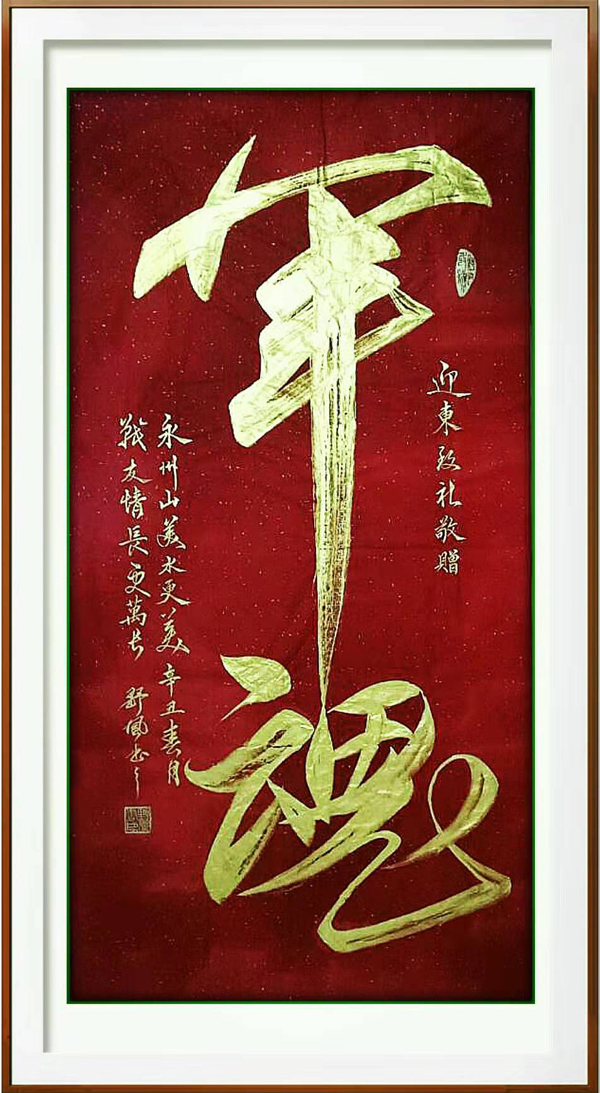 軍魂
迎東政社敬贈
永州山美水更美 辛丑春月
戰友情長更萬長 舒風書